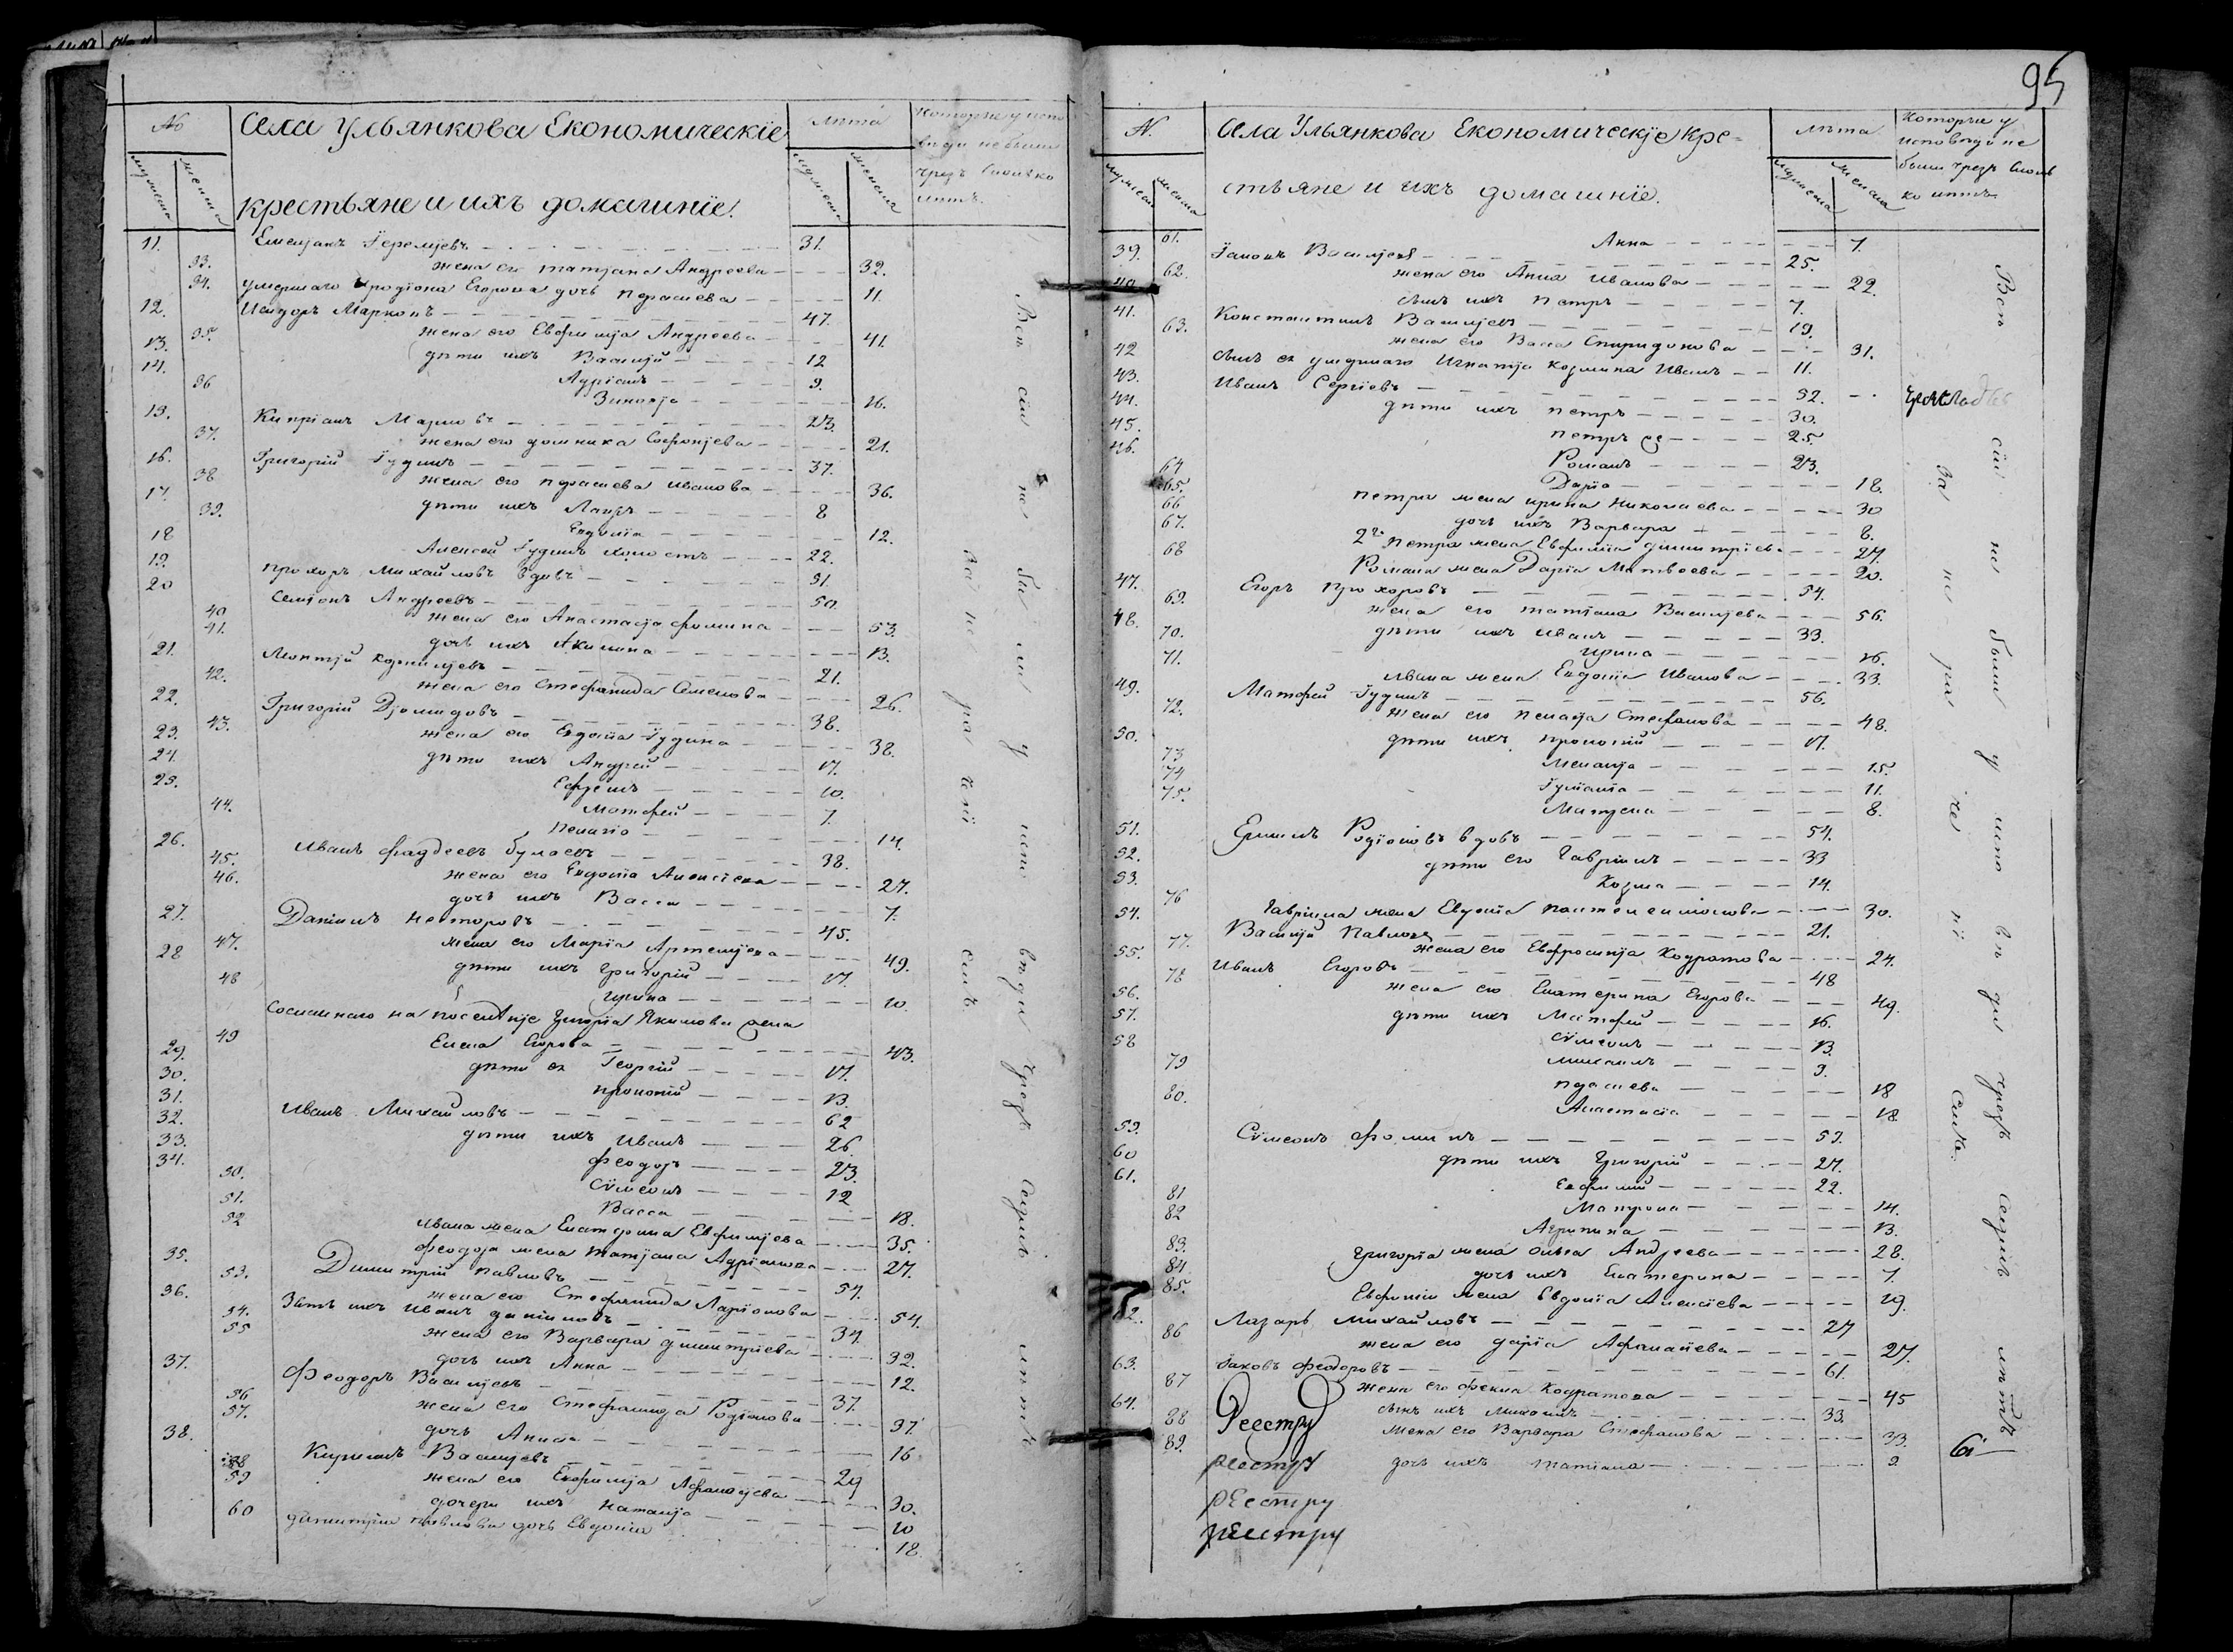 95
No
Села Ульянкова Економическїе
лѣта
Которые у испо
вѣди не были
чрезъ сколко
лѣтъ.
мужеска
женска
мужеска
женска
крестьяне и ихъ домашнїе.
11. Емелїанъ Їеремїевъ 31.
33. жена его татїана Андреева 32.
34. умершаго Їродїона Егорова дочь параскева 11.
12. Исидоръ Марковъ 47.
35. жена его Евфимїя Андреева 41
13. дѣти ихъ Василїй 12
14. Адрїанъ 9.
36 Зиновїя 16.
15. Кипрїанъ Марковъ 23.
37. жена его домника Софонїева 21.
16. Григорїй Їудинъ 37.
38 жена его параскева иванова 36.
17. дѣти ихъ Лавръ 8
39. Евдокїа 12.
18 Алексей Їудинъ холостъ 22.
19. прохоръ Михайловъ вдовъ 31.
20 Семїонъ Андреевъ 50.
40 жена его Анастасїя фомина 53.
41. дочь ихъ Акилина 13.
21. Леонтїй корнилїевъ 21.
42. жена его Стефанида Семенова 26.
22. Григорїй Дїомидовъ 38.
43. жена его Евдокїа Їудина 38.
23. дѣти ихъ Андрей 17.
24. Ефремъ 10.
25. Матфей 7.
44. пелагїа 14.
26. Иванъ фаддеевъ булаевъ 38.
45. жена его Евдокїа Алексїева 27.
46. дочь ихъ Васса 7.
27. Данїилъ несторовъ 45.
47. жена его Марїа Артемїева 49.
28 дѣти ихъ Григорїй 17.
48 ирина 10.
Сосланнаго на поселенїе Григорїа Якимова жена
49 Елена Егорова 43.
29. дѣти ея Георгїй 17.
30. прокопїй 13.
31. Иванъ Михайловъ 62
32. дѣти ихъ Иванъ 26.
33. феодоръ 23.
34. Сѷмеонъ 12
50. Васса 18.
51. Ивана жена Екатерина Евфимїева 35.
52 феодора жена татїана Адрїанова 27.
35. Димитрїй павловъ 57.
53. жена его Стефанида Ларїонова 54.
36. Зять ихъ Иванъ данїиловъ 34.
54. жена его Варвара димитрїева 32.
55 дочь ихъ Анна 12.
37. Феодоръ Василїевъ 37.
56 жена его Стефанида Родїонова 37.
57. дочь Анисїа 16
38. Кирилъ Василїевъ 29
58 жена его Евфимїя Афанасїева 30.
59 дочери ихъ наталїя 10
60 димитрїа павлова дочь Евдокїа 18
Всѣ сїи не были у исповѣди чрезъ седмь лѣтъ
за нераченїемъ
N.
Села Ульянкова Економическїе кре-
стьяне и ихъ домашнїе.
лѣта
Которые у
исповѣди не
были чрезъ сколь
ко лѣтъ
мужеска
женска
мужеска
женска
61. Анна 7.
39. Гапонъ Василїевъ 25.
62. жена его Анна Иванова 22.
40. сынъ ихъ петръ 7.
41. Константинъ Василїевъ 19.
63. жена его Васса Спиридонова 31.
42 сынъ ея умершаго Игнатїя козмина Иванъ 11.
43. Иванъ Сергїевъ 52.
44. дѣти ихъ петръ 30.
45. петръ же 25.
46. Романъ 23.
64 Дарїа 18.
65. петра жена ирина николаева 30
66 дочь ихъ Варвара 8.
67. 2го петра жена Евфимїа димитрїева 27.
68 Романа жена Дарїа Матвеева 20.
47. Егоръ прохоровъ 54.
69. жена его татїана Василїева 56.
48. дѣти ихъ иванъ 33.
70. ирина 16.
71. ивана жена Евдокїа Иванова 33.
49. Матфей Їудинъ 56.
72. жена его пелагїя Стефанова 48.
50. дѣти ихъ прокопїй 17.
73 Меланїя 15.
74 Їулїанїа 11.
75. Матрена 8.
51. Ермилъ Родїоновъ вдовъ 54.
52. дѣти его Гаврїилъ 33
53. Козма 14.
76 Гаврїила жена Евдокїа пантелеимонова 30.
54. Василїй павловъ 21.
77. жена его Евфросинїя Кодратова 24.
55. Иванъ Егоровъ 48
78 жена его Екатерина Егорова 49.
56. дѣти ихъ Матфей 16.
57. Сѷмеонъ 13.
58 михаилъ 9.
79 параскева 18
80. Анастасїа 18.
59. Сѷмеонъ фоминъ 59.
60 дѣти ихъ Григорїй 27.
61. Евфимїй 22.
81 Матрона 14.
82 Агрипина 13.
83. Григорїа жена олга Андреева 28.
84 дочь ихъ Екатерина 7.
85. Евфимїа жена Евдокїа Алексїева 19.
62. Лазарь михайловъ 27
86 жена его дарїа Афанасїева 27.
63. Їаковъ феодоровъ 61.
87 жена его фекла Кодратова 45
64. сынъ ихъ михаилъ 33.
88 жена его Варвара Стефанова 33.
89. дочь ихъ татїана 9.
Реестру
реестру
рЕестру
рЕестру
Всѣ сїи не были у исповѣди чрезъ седмь лѣтъ
за нераченїемъ